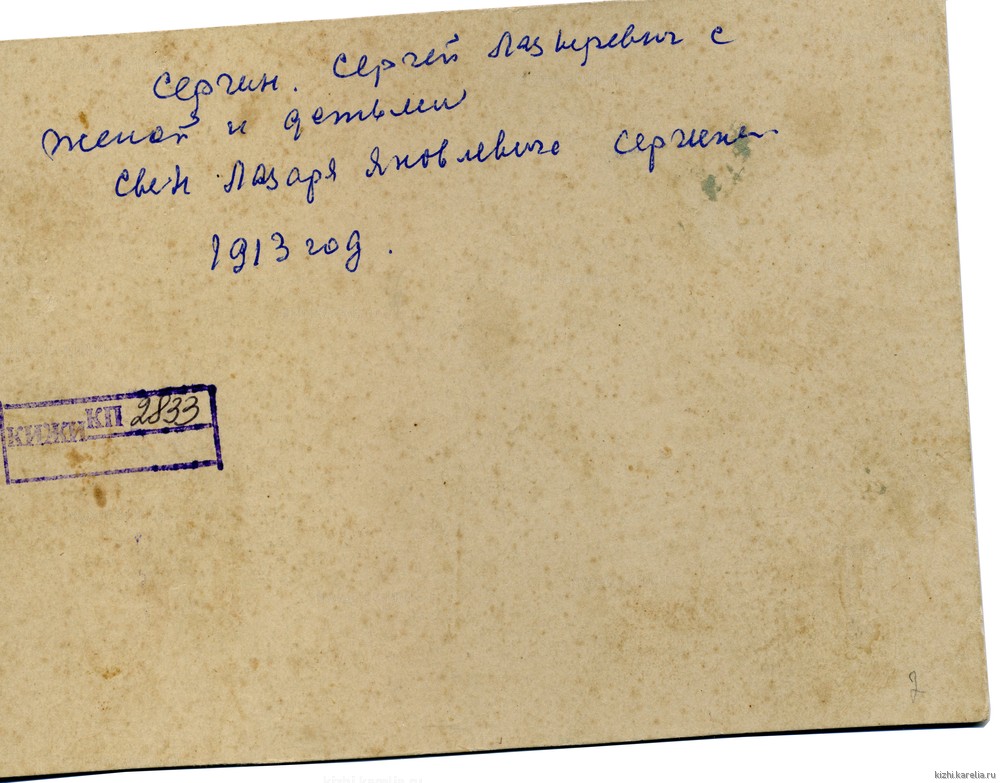 Сергин. Сергей Лазыревич с
женой и детьми
Свен Лазаря Яковлевича Сергина
1913 год.
КИЖИ КП 2833
2
kizhi.karelia.ru